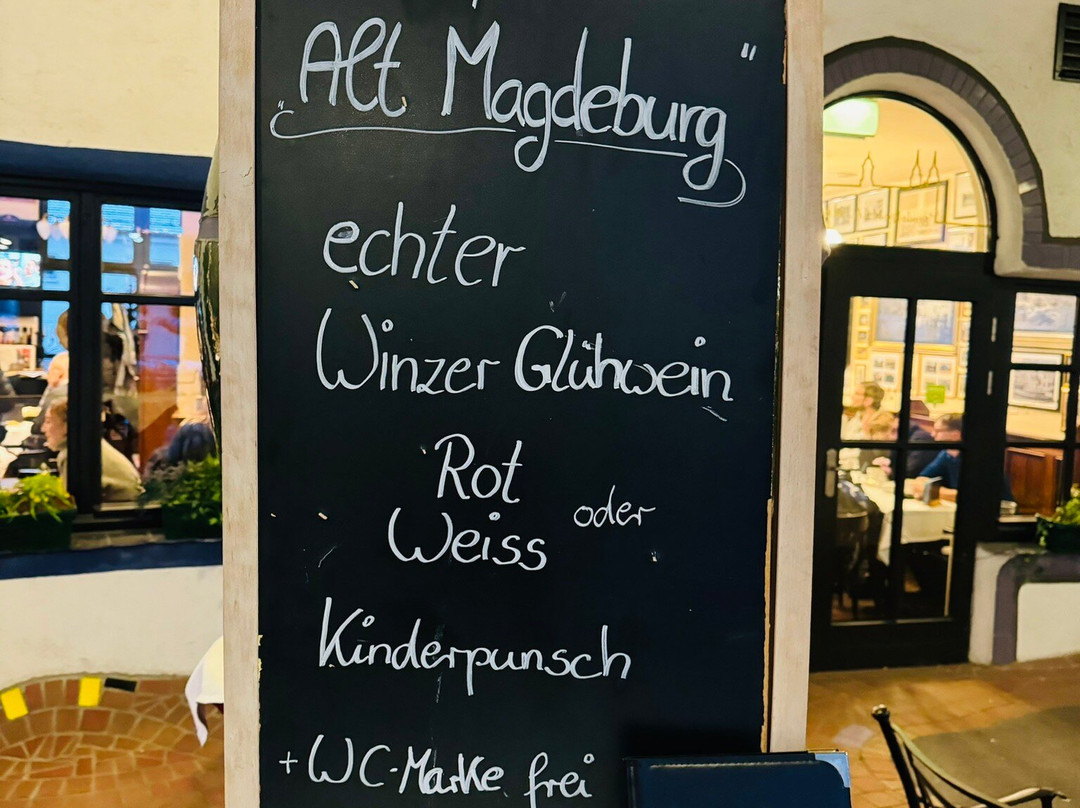 "Alt Magdeburg"
echter
Winzer Glühwein
Rot
oder
Weiss
Kinderpunsch
+ WC-Marke frei